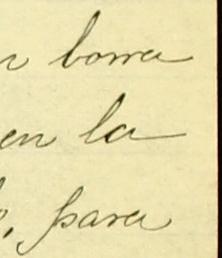 n borra
en la
o, para